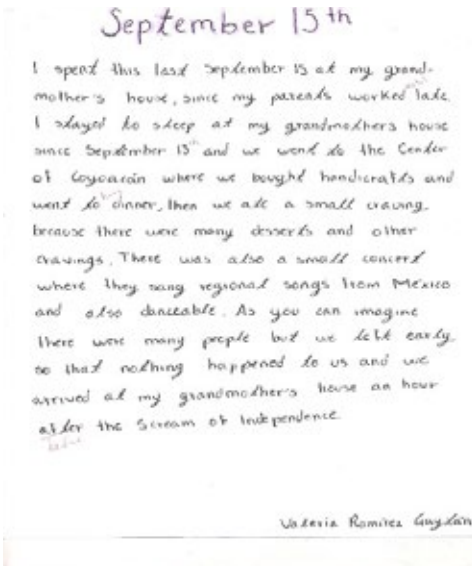 September 15th
I spent this last September 15 at my grand-
mother's house, since my parents worked late.
I stayed to sleep at my grandmothers house
since September 13th and we went to the Center
of Coyoacán where we bought handicrafts and
went to dinner, then we ate a small craving.
because there were many desserts and other
cravings. There was also a small concert
where they sang regional songs from México
and also danceable. As you can imagine
there were many people but we left early,
so that nothing happened to us and we
arrived at my grandmother's house an hour
after the Scream of Independence
Valeria Ramirez